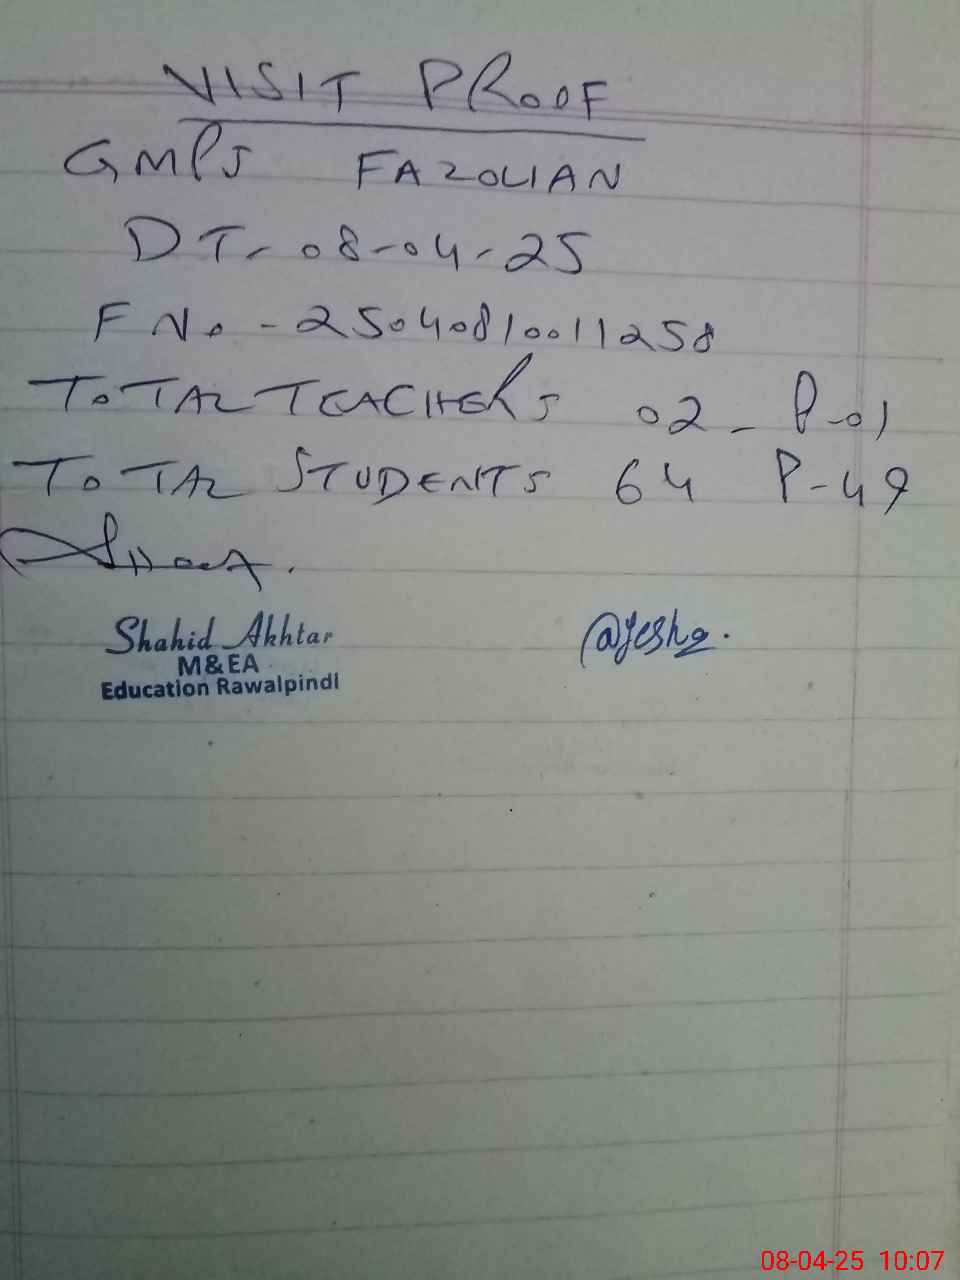 VISIT PROOF
GMPS FAZOLIAN
DT- 08-04-25
F No - 25040810011258
TOTAL TEACHERS 02 - P-01
TOTAL STUDENTS 64 P-49
Shahid Akhtar
M&EA
Education Rawalpindi
@yesha.
08-04-25 10:07